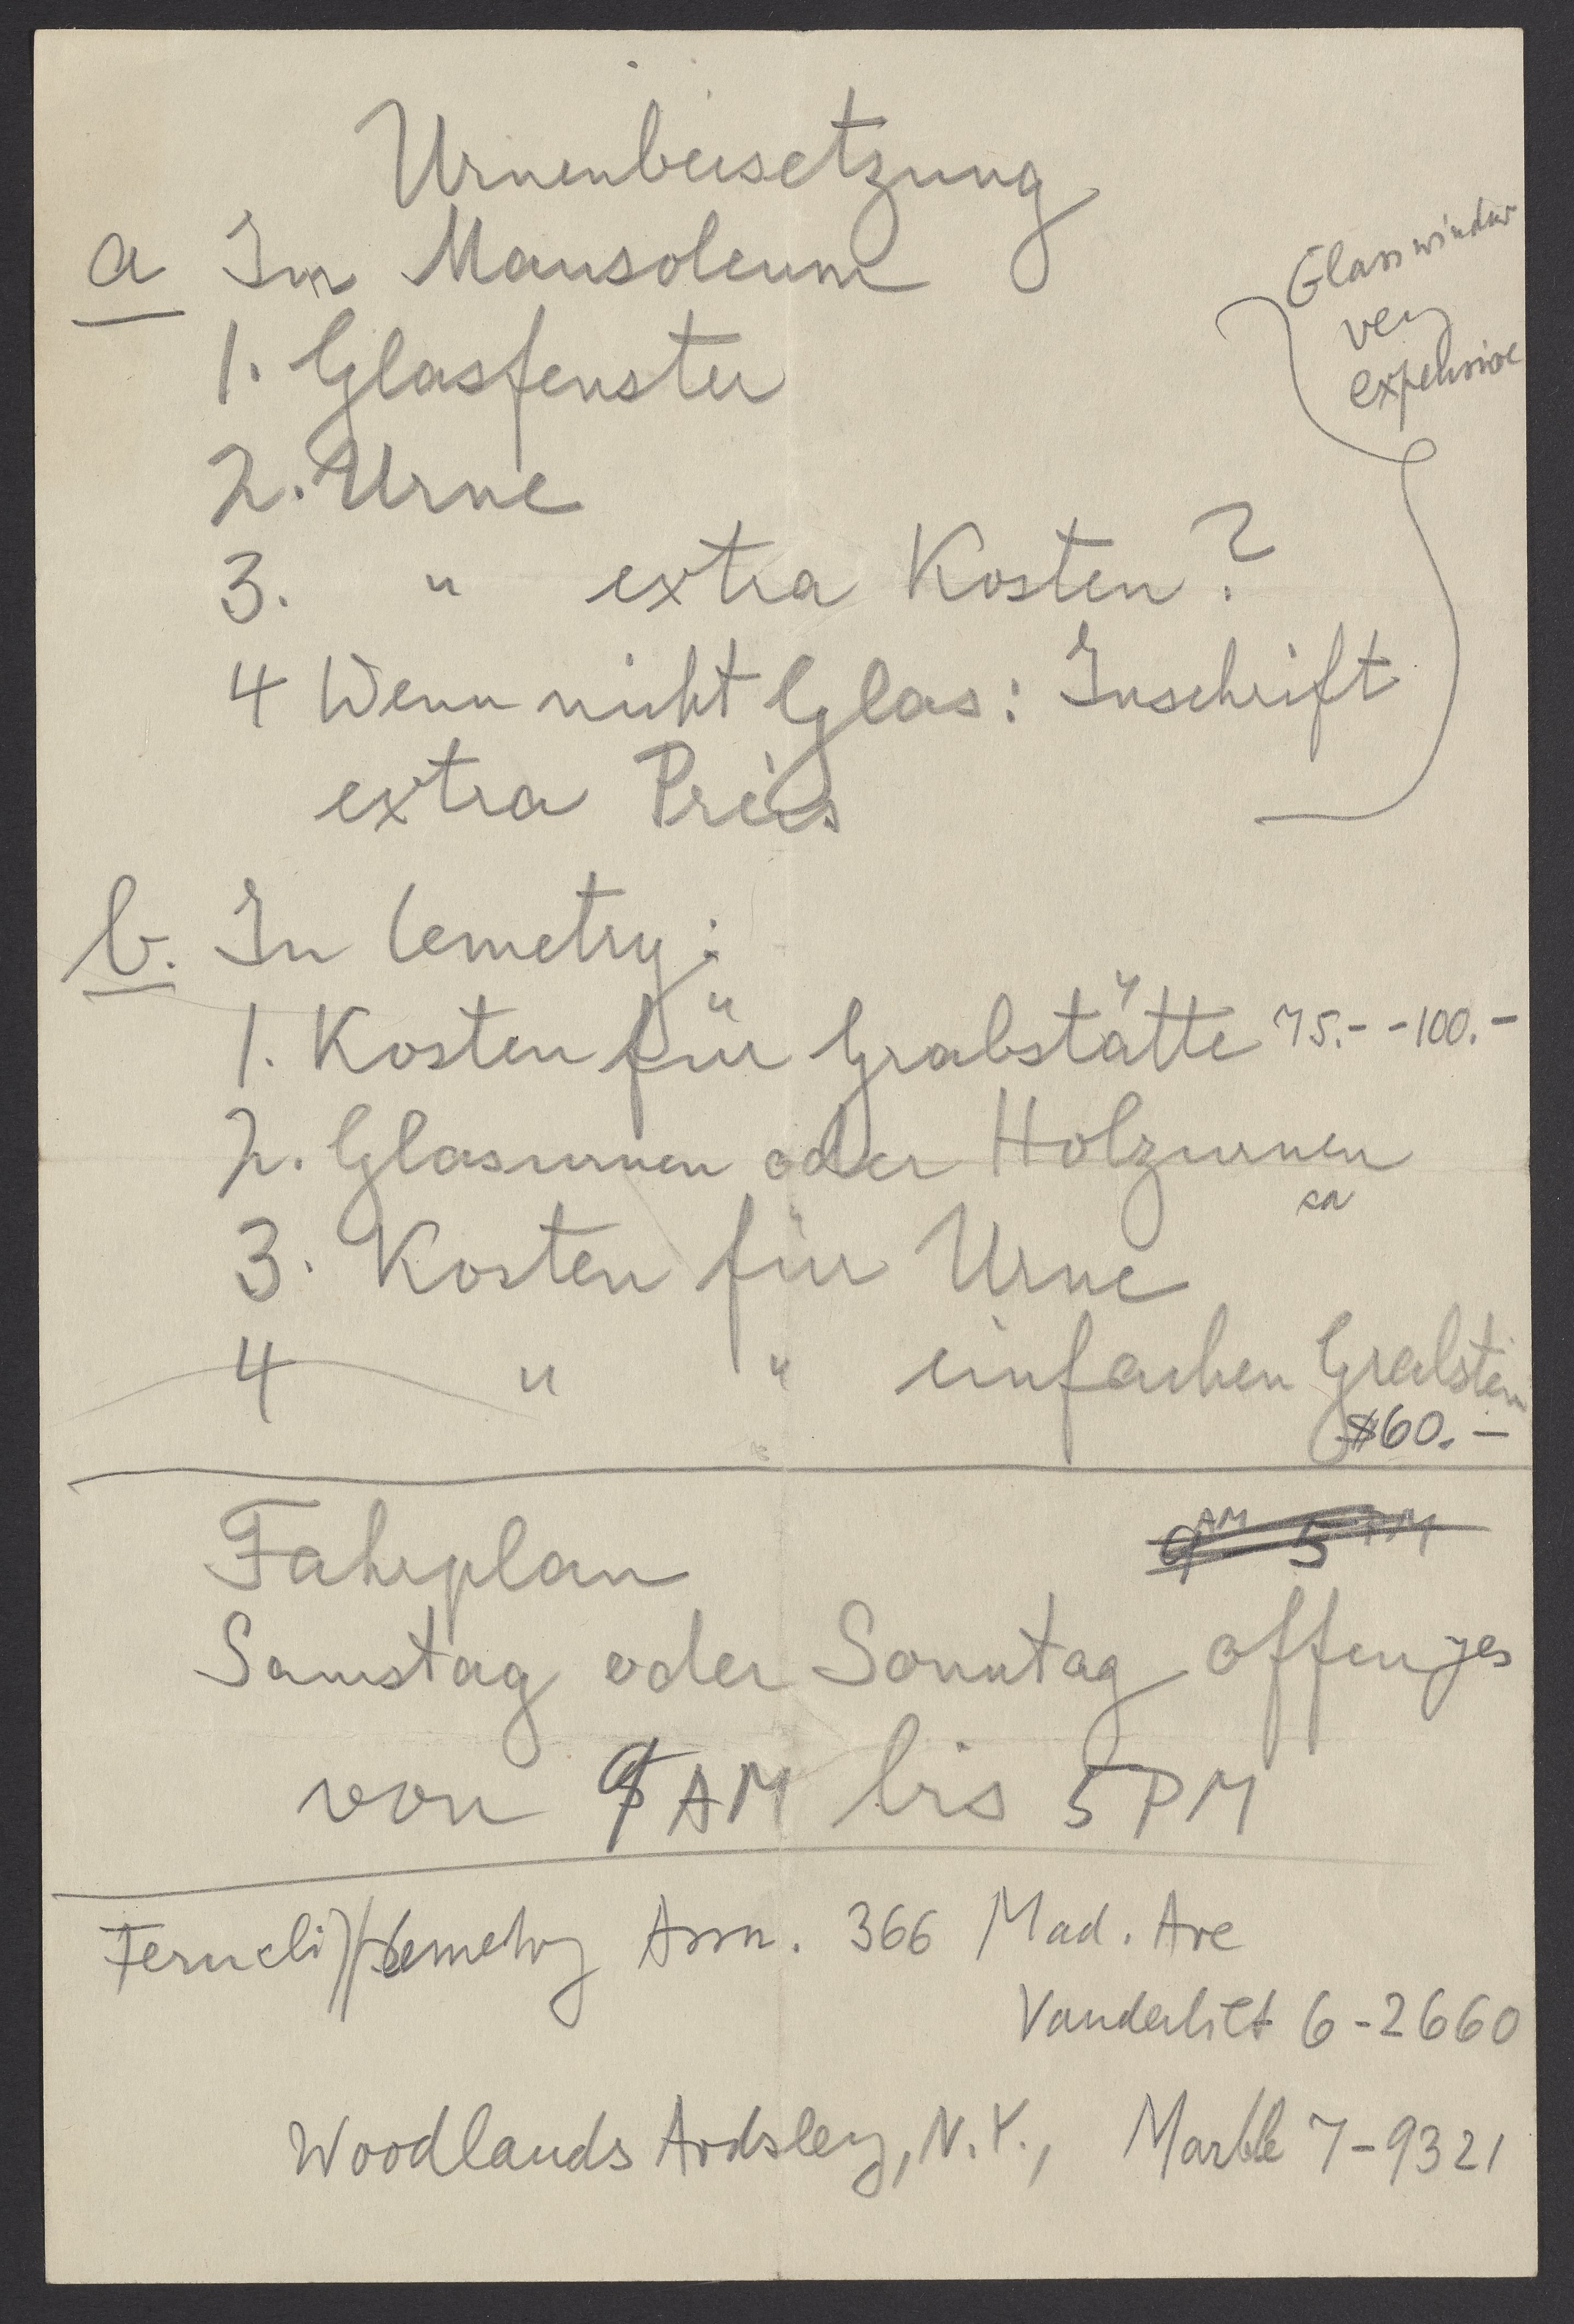 Urnenbeisetzung
a Im Mausoleum
Glasswindow
very
expensive
1. Glasfenster
2. Urne
3. " extra Kosten?
4 Wenn nicht Glas: Inschrift
extra Preis
b. In Cemetry:
1. Kosten für Grabstätte 75.- -100.-
2. Glasurnen oder Holzurnen
3. Kosten für Urne
4 " " einfachen Grabstein
$60.-
9 AM 5 PM
Fahrplan
Samstag oder Sonntag offen yes
von 9 AM bis 5 PM
Ferncliff Cemetry Assn. 366 Mad. Ave
Vanderbilt 6-2660
Woodlands Ardsley, N.Y., Marble 7-9321